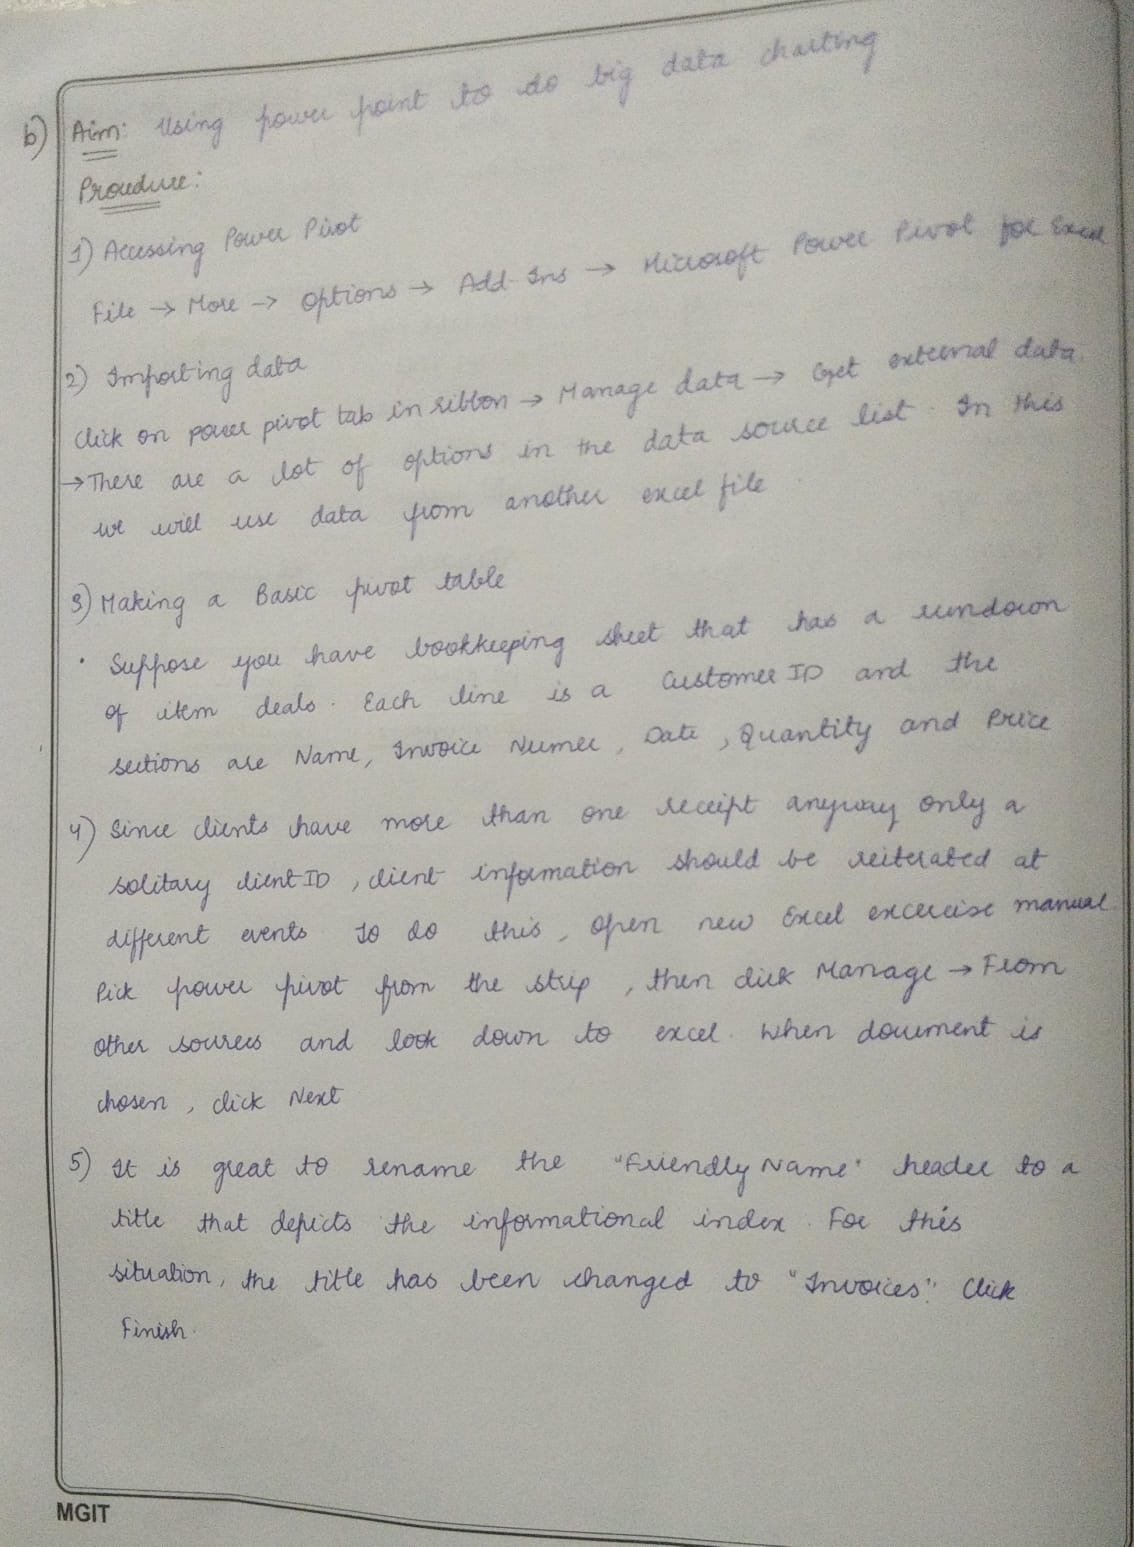 b) Aim: Using power point to do big data charting
Procedure:
1) Accessing Power Pivot
File → More → Options → Add-Ins → Microsoft Power Pivot for Excel
2) Importing data
Click on power pivot tab in ribbon → Manage data → Get external data.
→ There are a lot of options in the data source list. In this
we will use data from another excel file.
3) Making a Basic pivot table
• Suppose you have bookkeeping sheet that has a rundown
of item deals. Each line is a Customer ID and the
sections are Name, Invoice Numer, Date, Quantity and Price
4) Since clients have more than one receipt anyway only a
solitary client ID, client information should be reiterated at
different events. To do this, open new Excel excercise manual.
Pick power pivot from the strip, then click Manage → From
other sources and look down to excel. When document is
chosen, click Next
5) It is great to rename the "Friendly Name" header to a
title that depicts the informational index. For this
situation, the title has been changed to "Invoices". Click
Finish.
MGIT